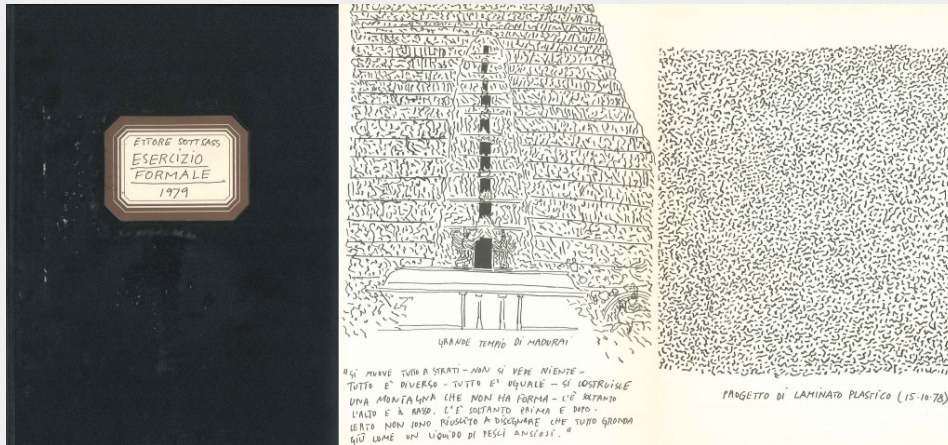 ETTORE SOTTSASS
ESERCIZIO
FORMALE
1979
GRANDE TEMPIO DI MADURAI
"SI MUOVE TUTTO A STRATI - NON SI VEDE NIENTE -
TUTTO E' DIVERSO - TUTTO E' UGUALE - SI COSTRUISCE
UNA MONTAGNA CHE NON HA FORMA - C'È SOLTANTO
L'ALTO E IL BASSO. C'È SOLTANTO PRIMA E DOPO.
CERTO NON SONO RIUSCITO A DISEGNARE CHE TUTTO GRONDA
GIÙ COME UN LIQUIDO DI PESCI ANSIOSI."
PROGETTO DI LAMINATO PLASTICO (15.10.78)